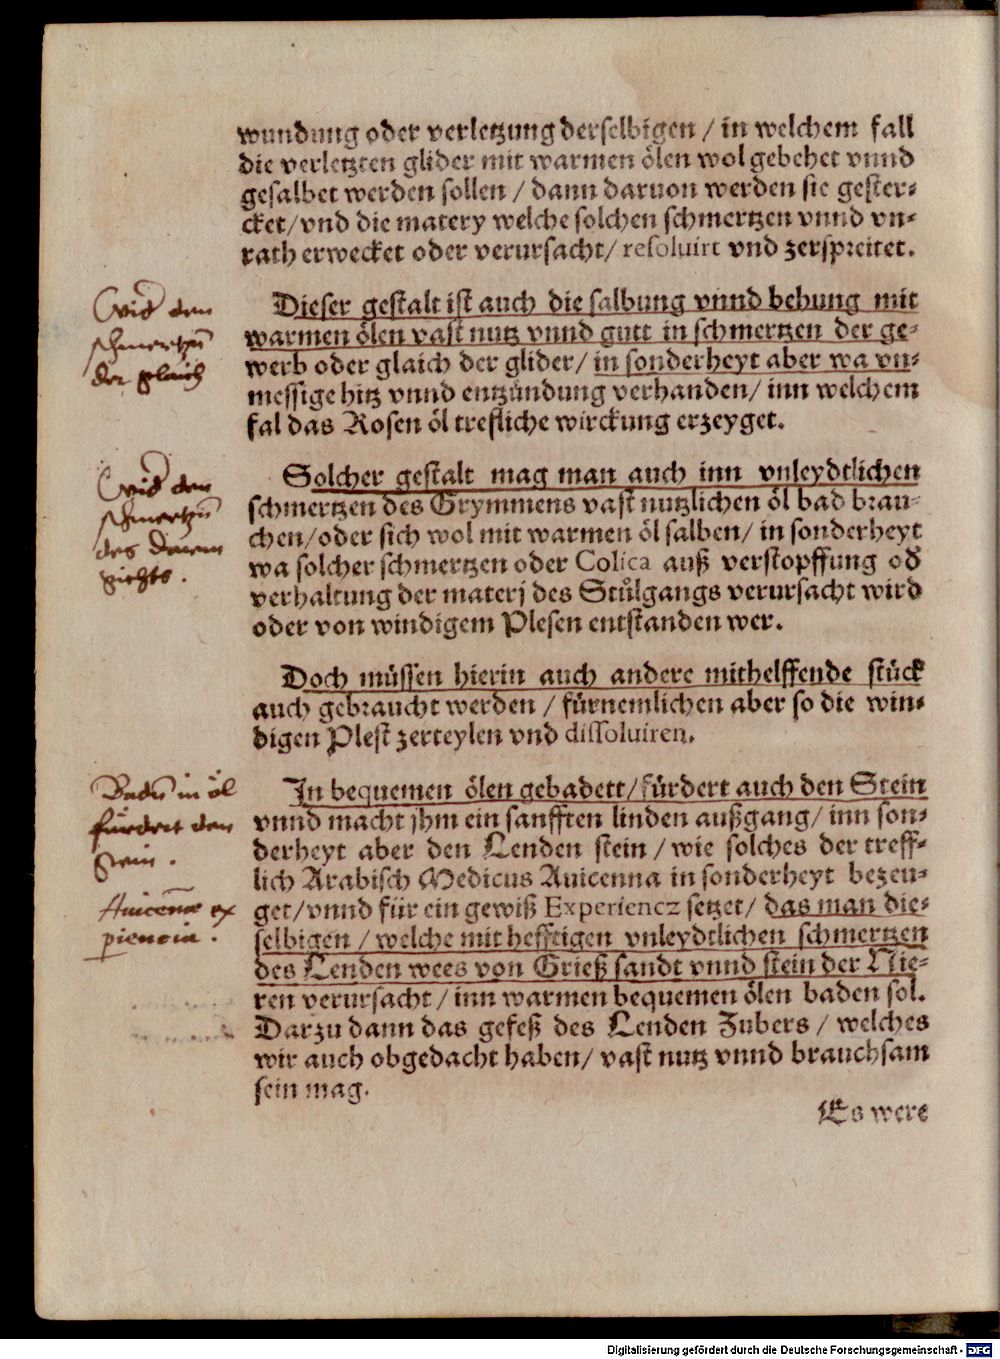 wundung oder verletzung derselbigen / in welchem fall
die verletzten glider mit warmen ölen wol gebehet vnnd
gesalbet werden sollen / dann daruon werden sie gester⸗
cket/vnd die matery welche solchen schmertzen vnnd vn⸗
rath erwecket oder verursacht/ resoluirt vnd zerspreitet.
Wid den
schmertzn̄
der gleich
Dieser gestalt ist auch die salbung vnnd behung mit
warmen ölen vast nutz vnnd gutt in schmertzen der ge⸗
werb oder glaich der glider/ in sonderheyt aber wa vn⸗
messige hitz vnnd entzündung verhanden/ inn welchem
fal das Rosen öl trefliche wirckung erzeyget.
Wid den
schmertzn̄
des Darm
gichts.
Solcher gestalt mag man auch inn vnleydtlichen
schmertzen des Grymmens vast nutzlichen öl bad brau⸗
chen/oder sich wol mit warmen öl salben/ in sonderheyt
wa solcher schmertzen oder Colica auß verstopffung od̕
verhaltung der materj des Stůlgangs verursacht wird
oder von windigem Plesen entstanden wer.
Doch müssen hierin auch andere mithelffende stück
auch gebraucht werden / fürnemlichen aber so die win⸗
digen Plest zerteylen vnd dissoluiren.
Badn̄ in öl
fürdert den
stein.
Auicennæ ex
pientia.
In bequemen ölen gebadett/fürdert auch den Stein
vnnd macht jhm ein sanfften linden außgang/ inn son⸗
derheyt aber den Lenden stein / wie solches der treff⸗
lich Arabisch Medicus Auicenna in sonderheyt bezeu⸗
get/vnnd für ein gewiß Experiencz setzet/ das man die⸗
selbigen / welche mit hefftigen vnleydtlichen schmertzen
des Lenden wees von Grieß sandt vnnd stein der Nie⸗
ren verursacht / inn warmen bequemen ölen baden sol.
Darzu dann das gefeß des Lenden Zubers / welches
wir auch obgedacht haben/ vast nutz vnnd brauchsam
sein mag.
Es were
Digitalisierung gefördert durch die Deutsche Forschungsgemeinschaft - DFG